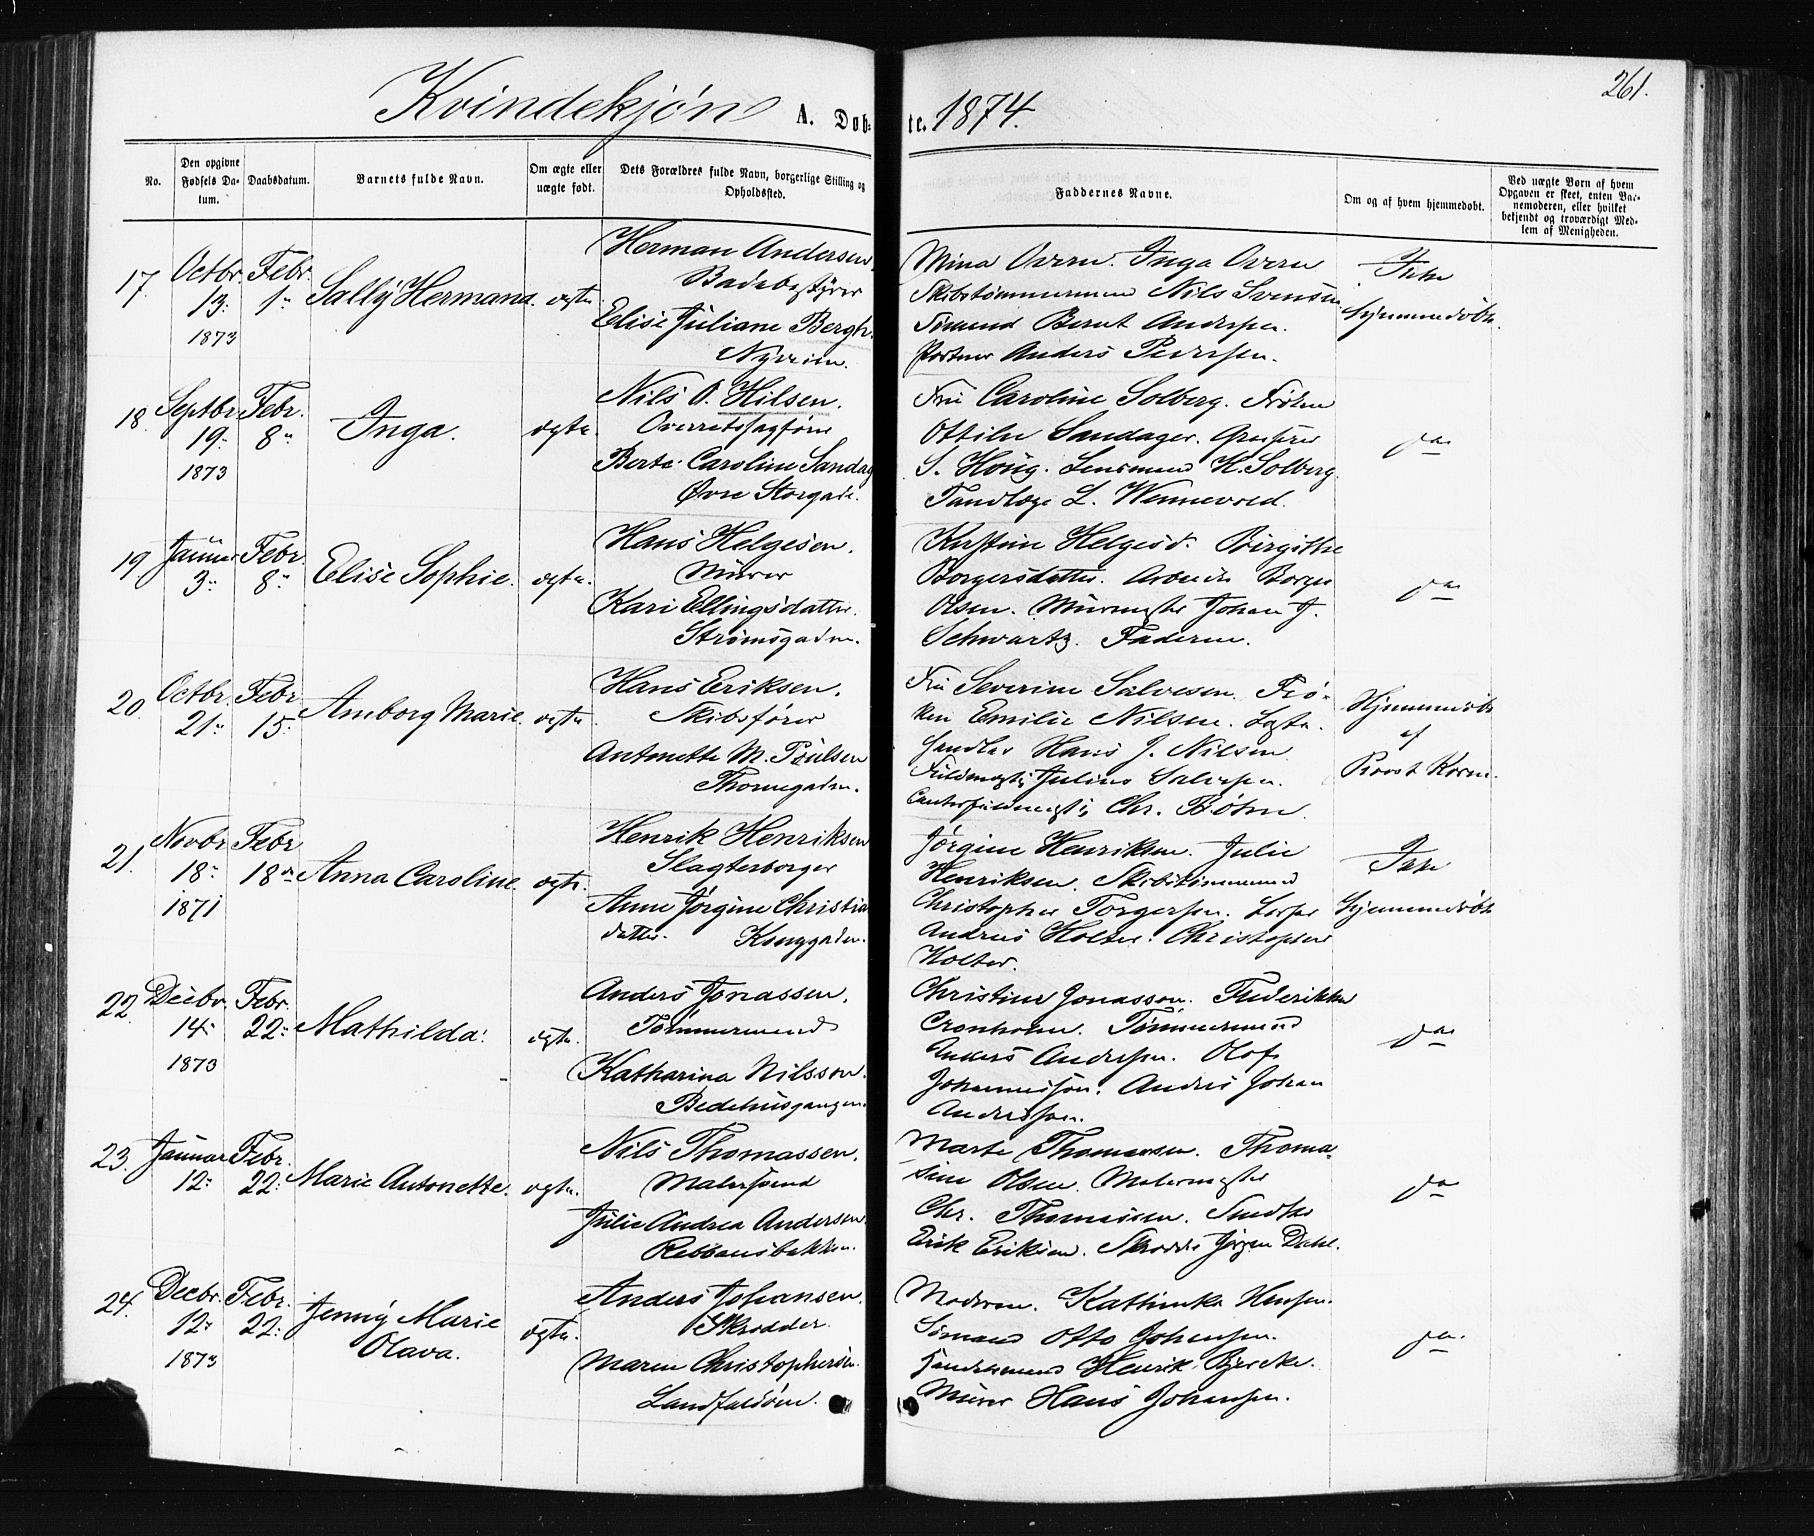 261.
Kvindekjøn A. Døb- te. 1874.
No.
Den opgivne Fødsels Datum.
Daabsdatum.
Barnets fulde Navn.
Om ægte eller uægte født.
Dets Forældres fulde Navn, borgerlige Stilling og Opholdssted.
Faddernes Navne.
Om og af hvem hjemmedøbt.
Ved uægte Børn af hvem Opgaven er skeet, enten Barnemoderen, eller hvilket bekjendt og troværdigt Medlem af Menigheden.
17. Octbr. Febr. Herman Andersen. Mina Overn. Inga Overn Ikke
13. 1ste Sally Hermana. ægte. Badebestyrer Skibstømmermand Nils Svensen hjemmedøbt.
1873 Elise Juliane Bergh. Sømand Bernt Andersen.
Nyveien. Portner Anders Pedersen.
18. Septbr. Febr. Nils O. Hilsen. Fru Caroline Solberg. Frøken
19. 8. Inga. ægte. Overretssagfører Ottilie Sandager. Grosserer do
1873 Berte Caroline Sandag S. Houg. Lensmand K. Solberg.
Øvre Storgade. Tandlæge L. Wennevold.
19. Januar Febr. Hans Helgesen. Kirstine Helgesd. Birgitte
3. 8. Elise Sophie. ægte. Murer Borgersdatter. Arbeider Borger do
Kari Ellingsdatter. Olsen. Murmester Johan J.
Strømsgaden. Schwartz. Faderen.
20. Octbr. Febr. Hans Eriksen. Fru Severine Salvesen. Frø- Hjemmedøbt
21. 15. Amborg Marie. ægte. Skibsfører ken Emilie Nilsen. Lægte- af
Antonette M. Poulsen handler Hans J. Nilsen Provst
Thornegaden. Fuldmægtig Julius Salvesen.
Chr. Bøhn.
21. Novbr. Febr. Henrik Henriksen Jørgine Henriksen. Julie Ikke
18. 18de Anna Caroline. ægte. Slagterborger Henriksen. Skibstømmermand
1871 Anne Jørgine Christian Christopher Torgersen. hjemmedøbt
datter. Konggaden. Andreas Holter. Christopher
Holter.
22. Decbr. Febr. Anders Jonassen. Christine Jonasson. Frederikke
14. 22. Mathilda. ægte. Tømmermand Cronholm. Tømmermand do
1873 Katharina Nilsson. Anders Andersen. Olof
Bedehusgangen. Johannesson. Andreas Johan
Andersson.
23. Januar Febr. Nils Thomassen. Marte Thomassen. Thoma-
12. 22. Marie Antonette. ægte. Malersvend sine Olsen. Malermester do
Julie Andrea Andersen. Chr. Thomassen.
Rebbansbakken. Erik Eriksen. Skrædder Jørgen Dahl.
24. Decbr. Febr. Anders Johansen. Moderen. Kathinka Hansen.
12. 22. Jenny Marie ægte. Skrædder. Sømand Otto Johansen. do
1873 Olava. Maren Christophersen. Handelsmand Henrik Bjercke.
Landfaldøen. Murer Hans Johansen.